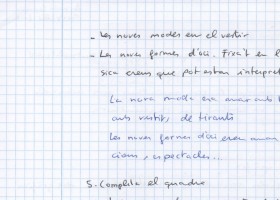 - Les noves modes en el vestir
- Les noves formes d'oci. Fixa't en l
sica creus que pot estar interpret
La nova moda era anar amb t
amb vestits, de tirants
Les noves formes d'oci eren anar
cions, espectacles...
5. Completa el quadre